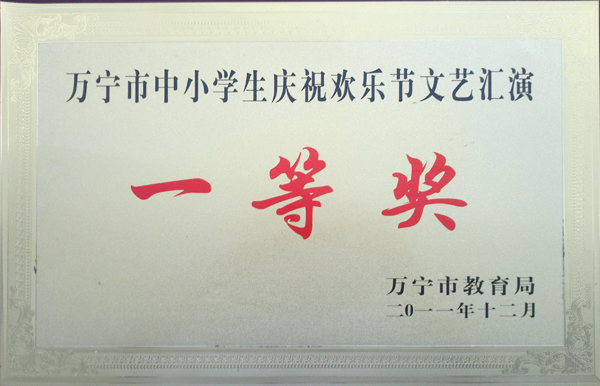 万宁市中小学生庆祝欢乐节文艺汇演
一等奖
万宁市教育局
二0一一年十二月